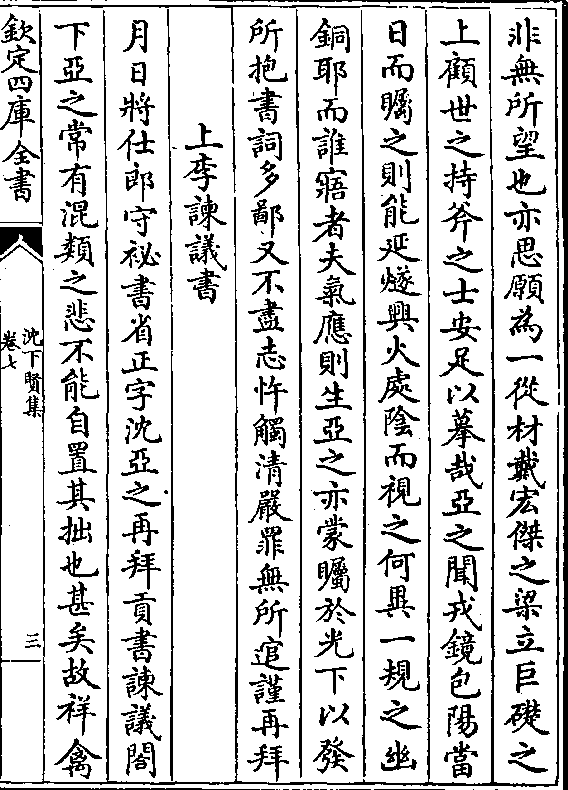 非無所望也亦思願為一從材戴宏傑之梁立巨礎之
上顧世之持斧之士安足以摹哉亞之聞戎鏡包陽當
日而矚之則能延燧興火處陰而視之何異一規之幽
銅耶而誰寤者夫氣應則生亞之亦蒙矚於光下以發
所抱書詞多鄙又不盡志忤觸清嚴罪無所逭謹再拜
上李諫議書
月日將仕郎守祕書省正字沈亞之再拜貢書諫議閤
下亞之常有混類之悲不能自置其拙也甚矣故祥禽
欽定四庫全書
沈下賢集
卷七
三